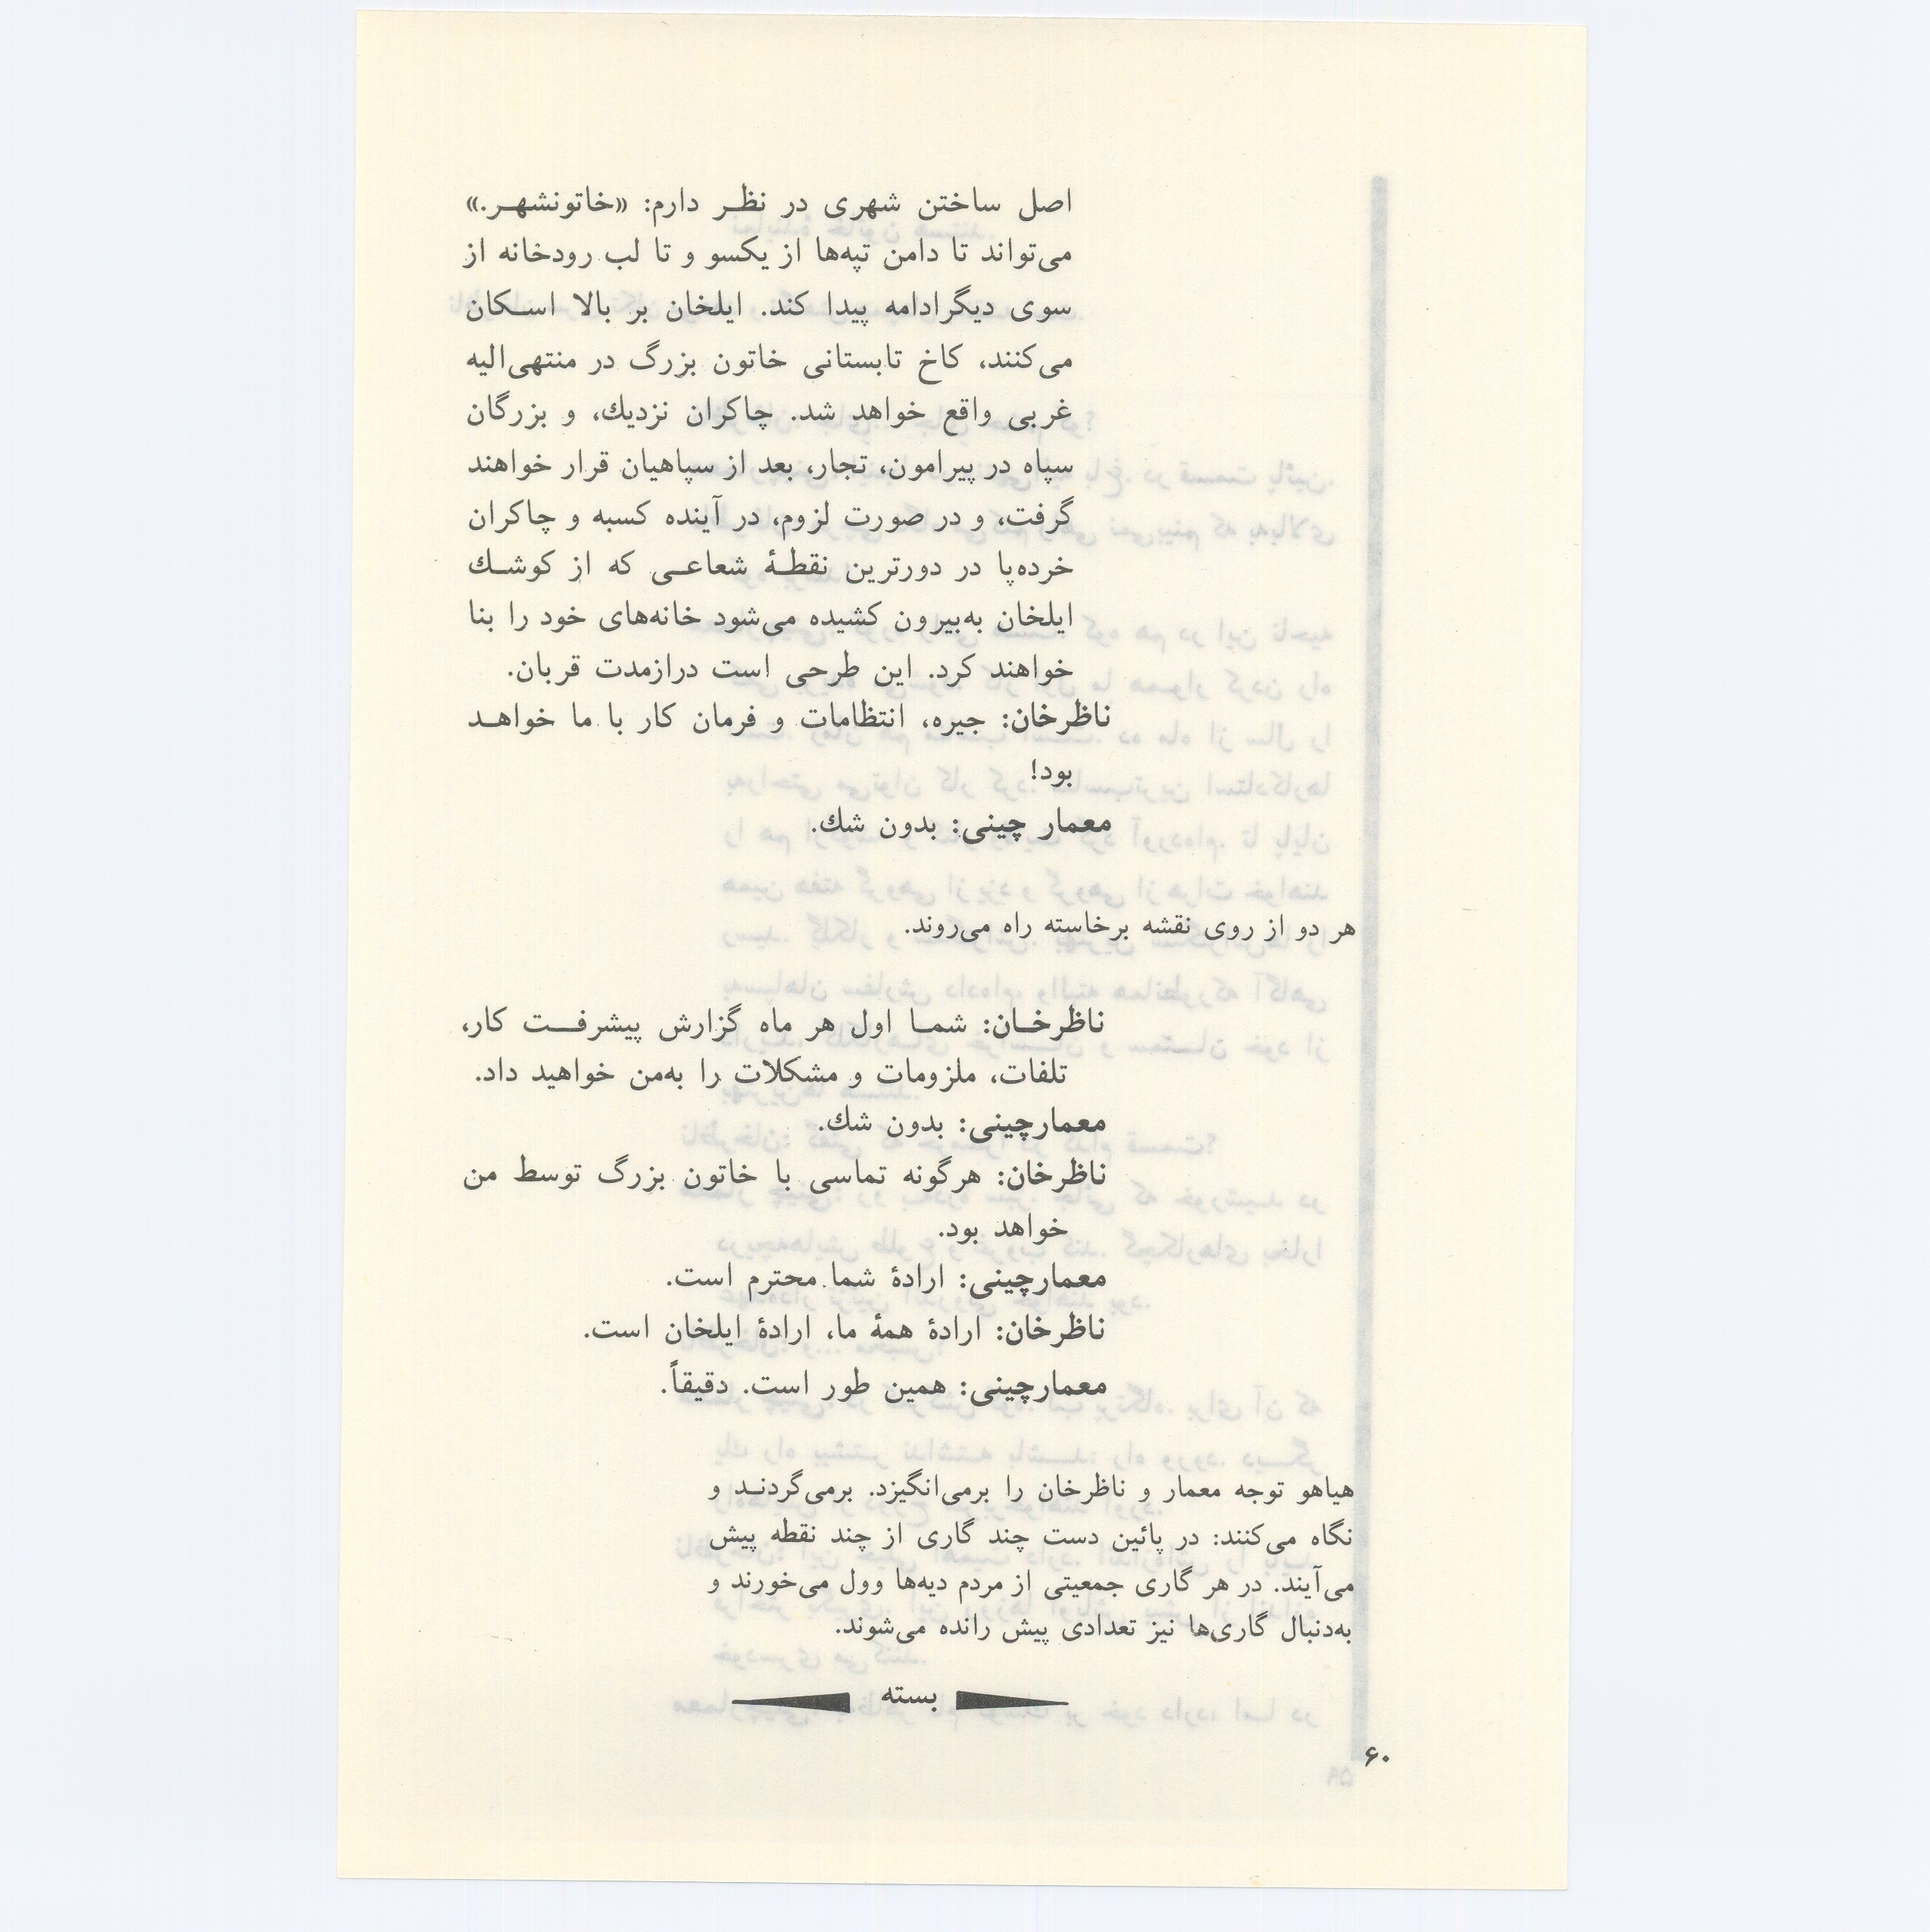 اصل ساختن شهری در نظر دارم: «خاتونشهر.»
می‌تواند تا دامن تپه‌ها از یکسو و تا لب رودخانه از
سوی دیگر ادامه پیدا کند. ایلخان بر بالا اسکان
می‌کنند، کاخ تابستانی خاتون بزرگ در منتهی‌الیه
غربی واقع خواهد شد. چاکران نزدیك، و بزرگان
سپاه در پیرامون، تجار، بعد از سپاهیان قرار خواهند
گرفت، و در صورت لزوم، در آینده کسبه و چاکران
خرده‌پا در دورترین نقطهٔ شعاعی که از کوشك
ایلخان به‌بیرون کشیده می‌شود خانه‌های خود را بنا
خواهند کرد. این طرحی است درازمدت قربان.
ناظرخان: جیره، انتظامات و فرمان کار با ما خواهد
بود!
معمار چینی: بدون شك.
هر دو از روی نقشه برخاسته راه می‌روند.
ناظرخان: شما اول هر ماه گزارش پیشرفت کار،
تلفات، ملزومات و مشکلات را به‌من خواهید داد.
معمارچینی: بدون شك.
ناظرخان: هرگونه تماسی با خاتون بزرگ توسط من
خواهد بود.
معمارچینی: ارادهٔ شما محترم است.
ناظرخان: ارادهٔ همهٔ ما، ارادهٔ ایلخان است.
معمارچینی: همین طور است. دقیقاً.
هیاهو توجه معمار و ناظرخان را برمی‌انگیزد. برمی‌گردند و
نگاه می‌کنند: در پائین دست چند گاری از چند نقطه پیش
می‌آیند. در هر گاری جمعیتی از مردم دیه‌ها وول می‌خورند و
به‌دنبال گاری‌ها نیز تعدادی پیش رانده می‌شوند.
بسته
۶۰